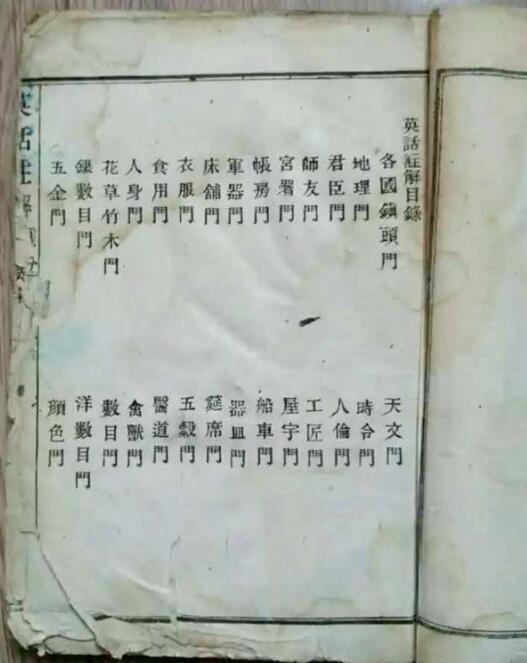 英話註解目錄
各國鎮頭門 天文門
地理門 時令門
君臣門 人倫門
師友門 工匠門
宮署門 屋宇門
帳房門 船車門
軍器門 器皿門
床舖門 筵席門
衣服門 五穀門
食用門 醫道門
人身門 禽獸門
花草竹木門 數目門
銀數目門 洋數目門
五金門 顔色門
英話註解